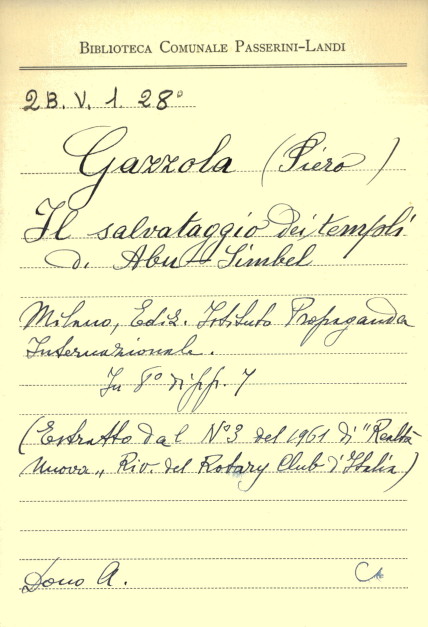 BIBLIOTECA COMUNALE PASSERINI-LANDI
2B. V. 1. 28°
Gazzola (Piero)
Il salvataggio dei templi
di Abu-Simbel
Milano, Ediz. Istituto Propaganda
Internazionale.
In 8° di pp. 7
(Estratto dal N°3 del 1961 di "Realtà
Nuova" Riv. del Rotary Club d'Italia)
Dono A.